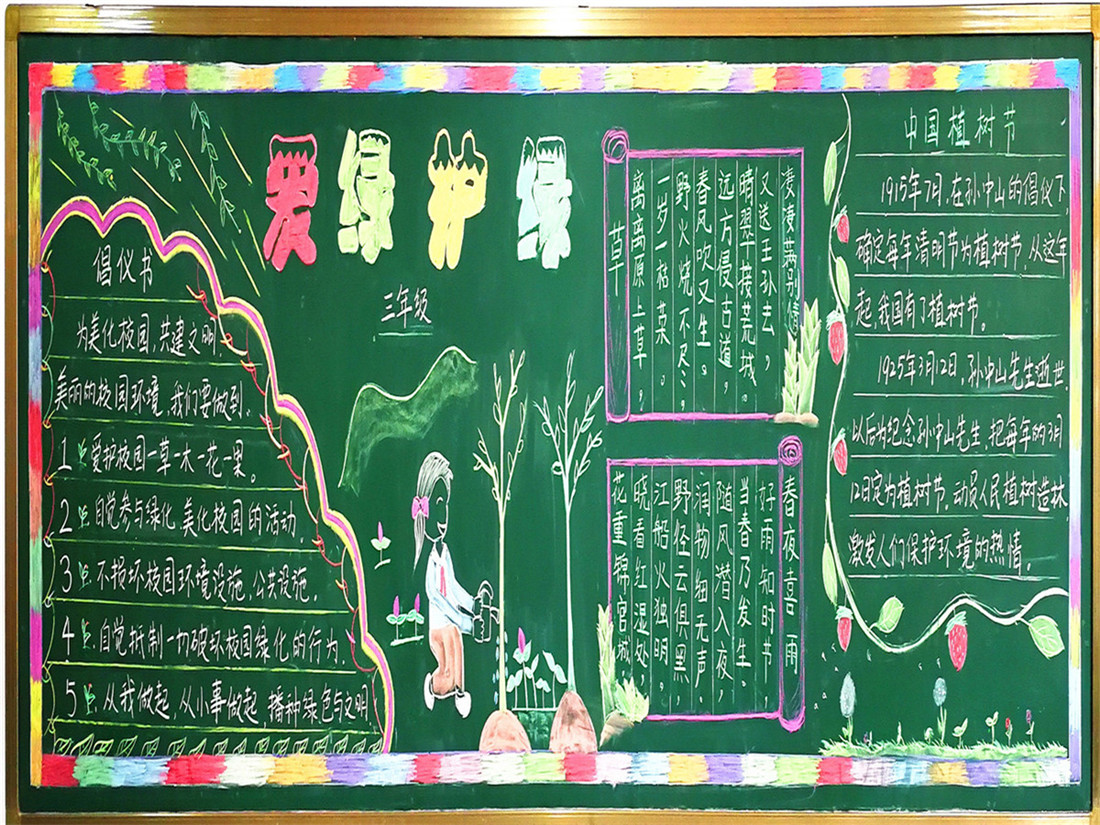 爱绿护绿
三年级
倡仪书
为美化校园,共建文明,
美丽的校园环境,我们要做到。
1 爱护校园一草一木一花一果。
2 自觉参与绿化,美化校园的活动。
3 不损坏校园环境设施,公共设施。
4 自觉抵制一切破坏校园绿化的行为。
5 从我做起,从小事做起,播种绿色与文明
草
离离原上草
一岁一枯荣。
野火烧不尽,
春风吹又生。
远方侵古道,
晴翠接荒城。
又送王孙去,
凄凄满别情
春夜喜雨
好雨知时节,
当春乃发生.
随风潜入夜,
润物细无声.
野径云俱黑,
江船火独明.
晓看红湿处,
花重锦官城.
中国植树节
1915年7月,在孙中山的倡仪下,
确定每年清明节为植树节,从这年
起,我国有了植树节。
1925年3月12日,孙中山先生逝世.
以后为纪念孙中山先生,把每年的3月
12日定为植树节,动员人民植树造林
激发人们保护环境的热情。